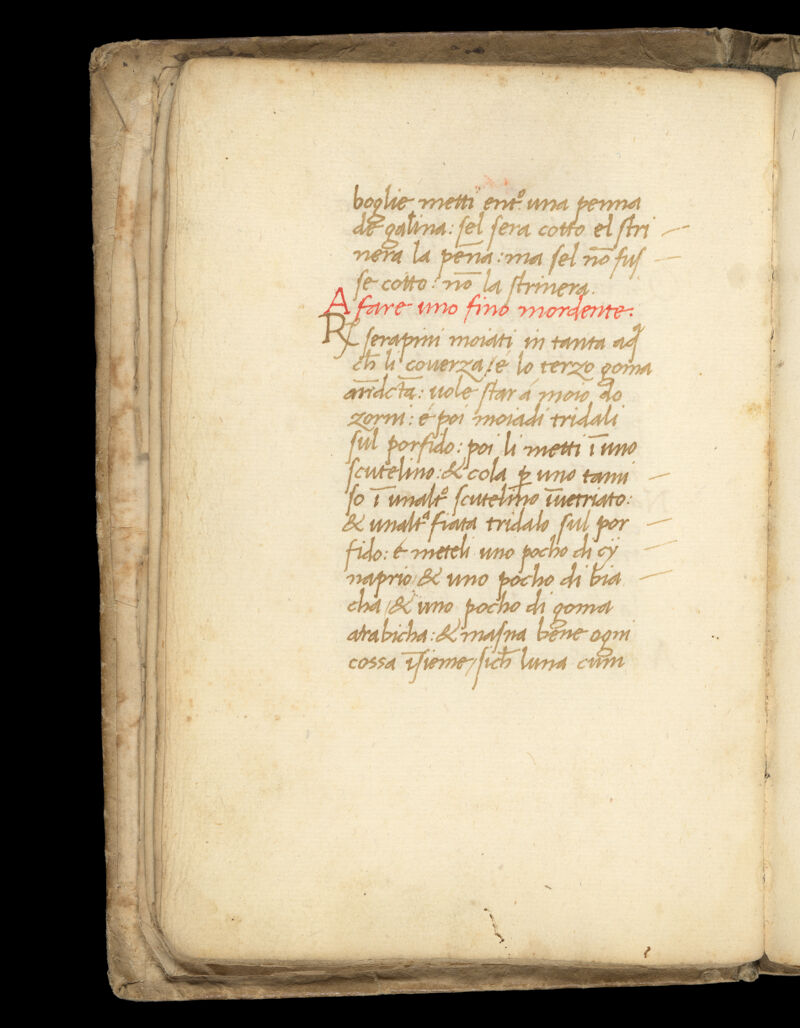 boglie metti entº una penna
de galina: sel sera cotto el stri
nera la pēna: ma sel nō fus
se cotto: nō la strinera.
A fare uno fino mordente.
R serapini moiati in tanta aq̄
ch̄ li couerza / e lo terzo goma
uole star a moio do
zorni: é poi moiadi tridali
sul porfido: poi li metti ī uno
scutelino: & cola ꝑ uno tami
so ī unaltº scutelino īuetriato:
& unaltª fiata tridalo sul por
fido: é meteli uno pocho di cÿ
naprio / & uno pocho di bia
cha / & uno pocho di goma
arabicha: & masna bene ogni
cossa īsieme / sich̄ luna cum